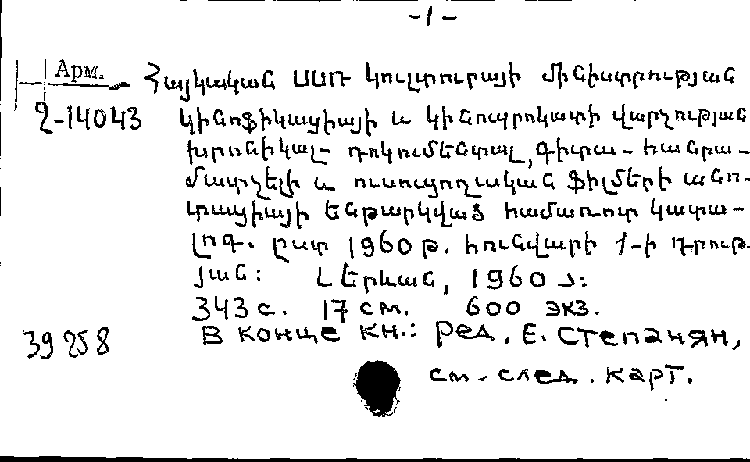 -1-
Арм. Հայկական ՍՍՌ կուլտուրայի մինիստրության
2-14043 կինոֆիկացիայի և կինոպրոկատի վարչության
խրոնիկալ- դոկումենտալ, գիտա- հանրա-
մատչելի և ուսուցողական ֆիլմերի անո-
տացիայի ենթարկված համառոտ կատա-
լոգ. ըստ 1960 թ. հունվարի 1-ի դրութ-
յան: Երևան, 1960:
343 с. 17 см. 600 экз.
39258 В конце кн.: ред. Е. Степанян,
см. след. карт.